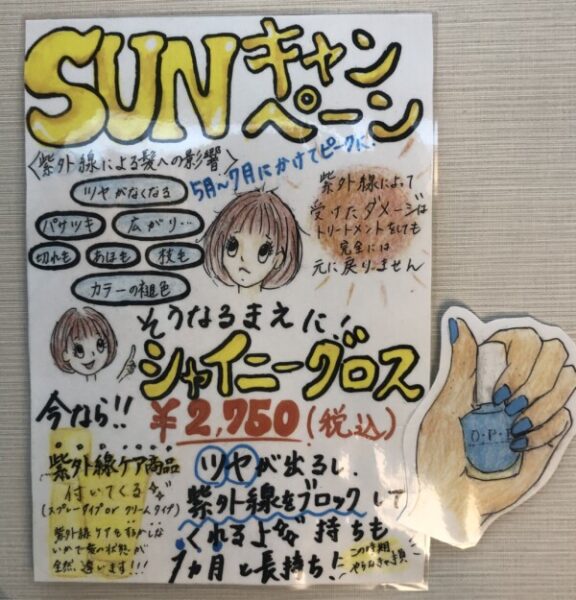 SUN キャン
ペーン
〈紫外線による髪への影響〉
5月〜7月にかけてピークに!
ツヤがなくなる
パサツキ
広がり…
切れも
あほも
枝も
カラーの褪色
紫外線によって
受けたダメージは
トリートメントをしても
完全には
元に戻りません
そうなるまえに!
シャイニーグロス
今なら!!
¥2,750(税込)
紫外線ケア商品
付いてくる
(スプレータイプor クリームタイプ)
紫外線ケアをするかしな
いかで髪の状態が
全然、違います!!!
ツヤが出るし、
紫外線をブロックして
くれるよ 持ちも
1ヵ月と長持ち!
この時期
O・P・I